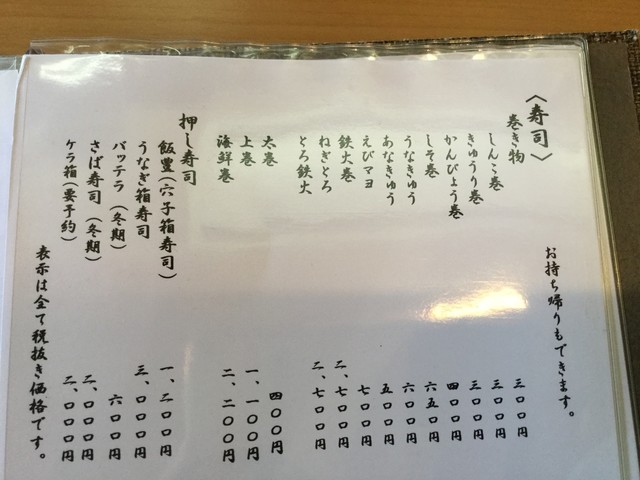 〈寿司〉
お持ち帰りもできます。
巻き物
しんこ巻 三〇〇円
きゅうり巻 三〇〇円
かんぴょう巻 三〇〇円
しそ巻 四〇〇円
うなきゅう 六五〇円
あなきゅう 六〇〇円
えびマヨ 五〇〇円
鉄火巻 七〇〇円
ねぎとろ 二、七〇〇円
とろ鉄火 二、七〇〇円
太巻 四〇〇円
上巻 一、一〇〇円
海鮮巻 二、二〇〇円
押し寿司
飯豊(穴子箱寿司) 一、二〇〇円
うなぎ箱寿司 三、〇〇〇円
バッテラ(冬期) 六〇〇円
さば寿司(冬期) 二、〇〇〇円
ケラ箱(要予約) 二、〇〇〇円
表示は全て税抜き価格です。